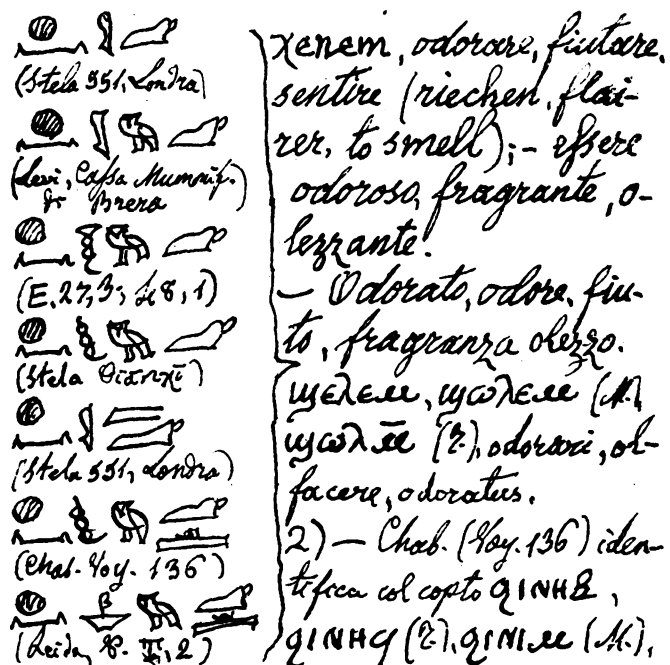 (Stela 551, Londra)
(Levi, Cassa Mummif.
di Brera)
(E. 27, 3; 48, 1)
(Stela
(Stela 551, Londra)
(Chab. Voy. 136)
(Leida, 2)
χenem, odorare, fiutare,
sentire (riechen, flai-
rer, to smell);- essere
odoroso, fragrante, o-
lezzante.
— Odorato, odore, fiu-
to, fragranza olezzo.
ϣⲉⲗⲉⲙ, ϣⲱⲗⲉⲙ (M.),
ϣⲱⲗⲙ̄ (T.), odorari, ol-
facere, odoratus.
2) — Chab. (Voy. 136) iden-
tifica col copto ϥⲓⲛⲏⲃ,
ϥⲓⲛⲏϥ (T.), ϥⲓⲛⲓⲙ (M.),